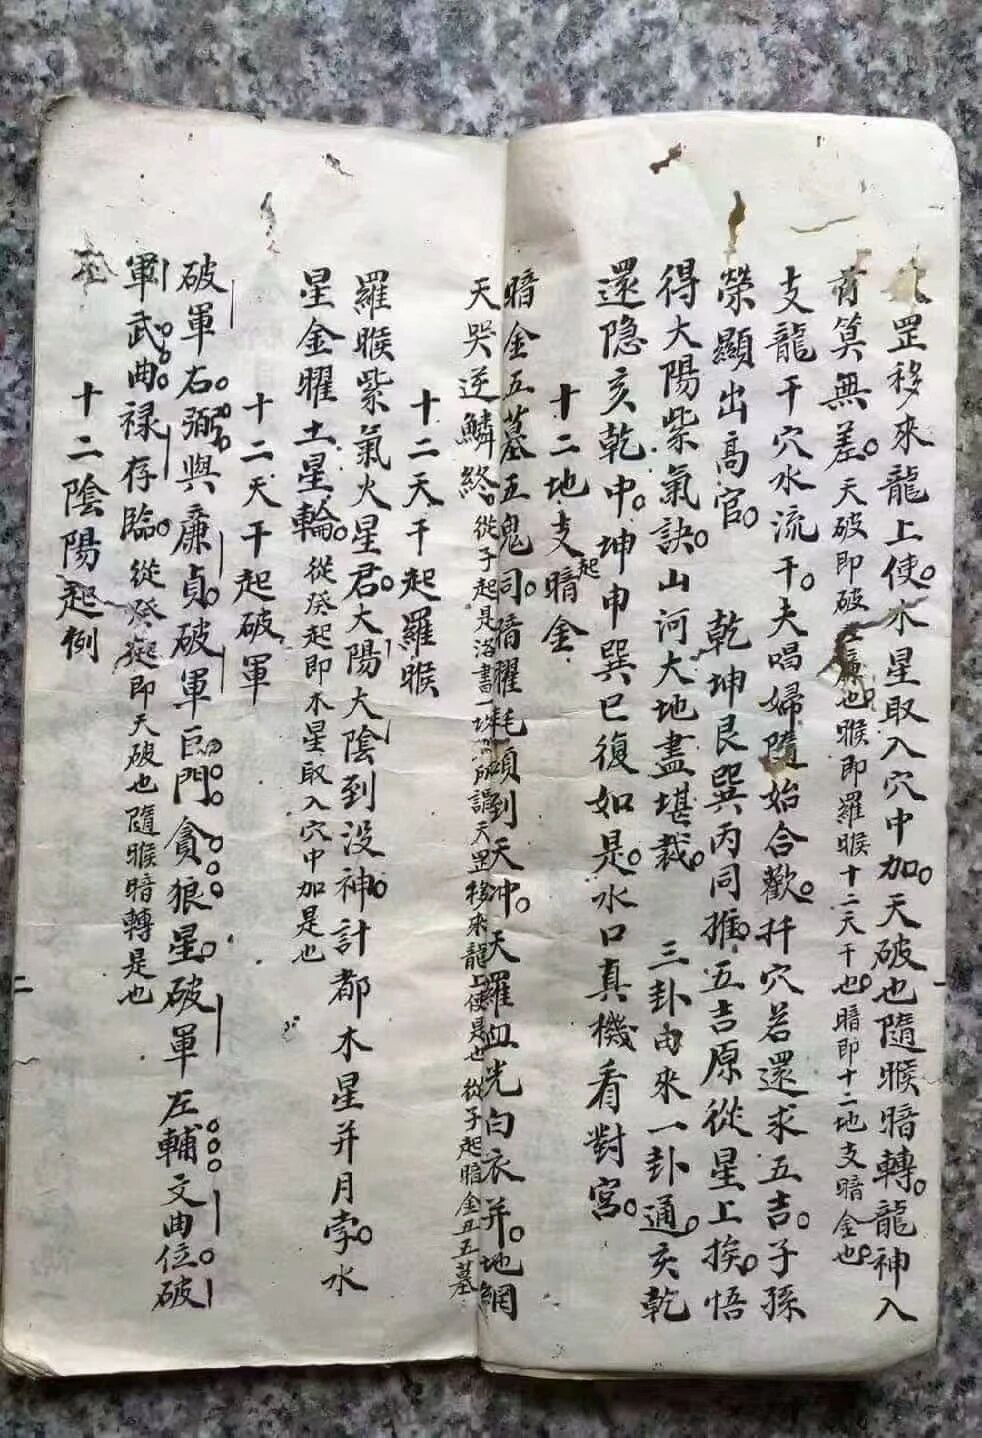 罡移來龍上使水星取入穴中加天破也隨㬋暗轉龍神入
首筭無差天破即破廉也㬋即羅㬋十二天干也暗即十二地支暗金也
支龍干穴水流干夫唱婦隨始合歡扦穴若還求五吉子孫
榮顯出高官 乾坤艮巽丙同推五吉原從星上挨悟
得大陽紫氣訣山河大地盡堪裁 三卦由來一卦通亥乾
還隐亥乾中坤申巽巳復如是水口真機看對宮
十二地支起暗金
暗金五墓五鬼司暗曜耗頭到天沖天羅血光白衣并地網
天哭逆鱗終從子起是洛書一坎所謂天罡移來龍上使是也從子起暗金丑五墓
十二天干起羅㬋
羅㬋紫氣火星君大陽大陰到没神計都木星并月孛水
星金曜土星輪從癸起即水星取入穴中加是也
十二天干起破軍
破軍右弼與廉貞破軍巨門貪狼星破軍左輔文曲位破
軍武曲禄存臨從癸起即天破也隨㬋暗轉是也
十二陰陽起例